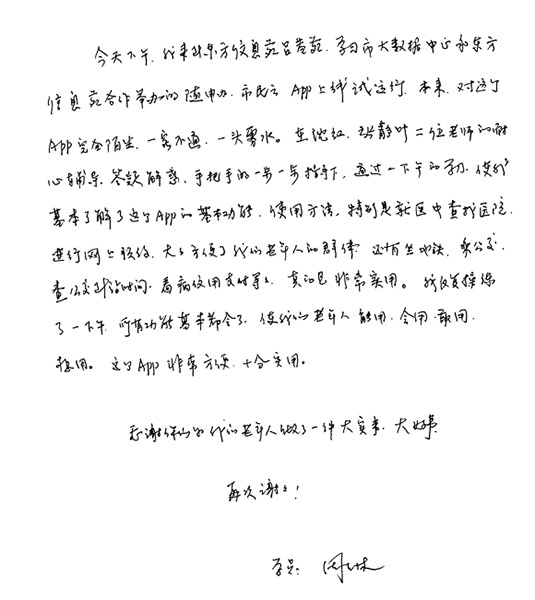 今天下午,我来到东方信息苑吕巷苑,学习市大数据中心和东方
信息苑合作举办的随申办市民云App上线试运行,本来,对这个
App完全陌生,一窍不通,一头雾水。在沈红、张静叶二位老师的耐
心辅导,答疑解惑,手把手的一步一步指导下,通过一下午的学习,使我
基本了解了这个App的基本功能,使用方法,特别是就医中查找医院,
进行网上预约,大大方便了我们老年人的群体,还有坐地铁,乘公交,
查公交到站时间,看病使用支付等等,真的是非常实用。我反复操练
了一下午,所有功能基本都会了,使我们老年人能用,会用,敢用,
想用。这个App非常方便,十分实用。
感谢你们为我们老年人做了一件大实事,大好事
再次谢谢!
学员: